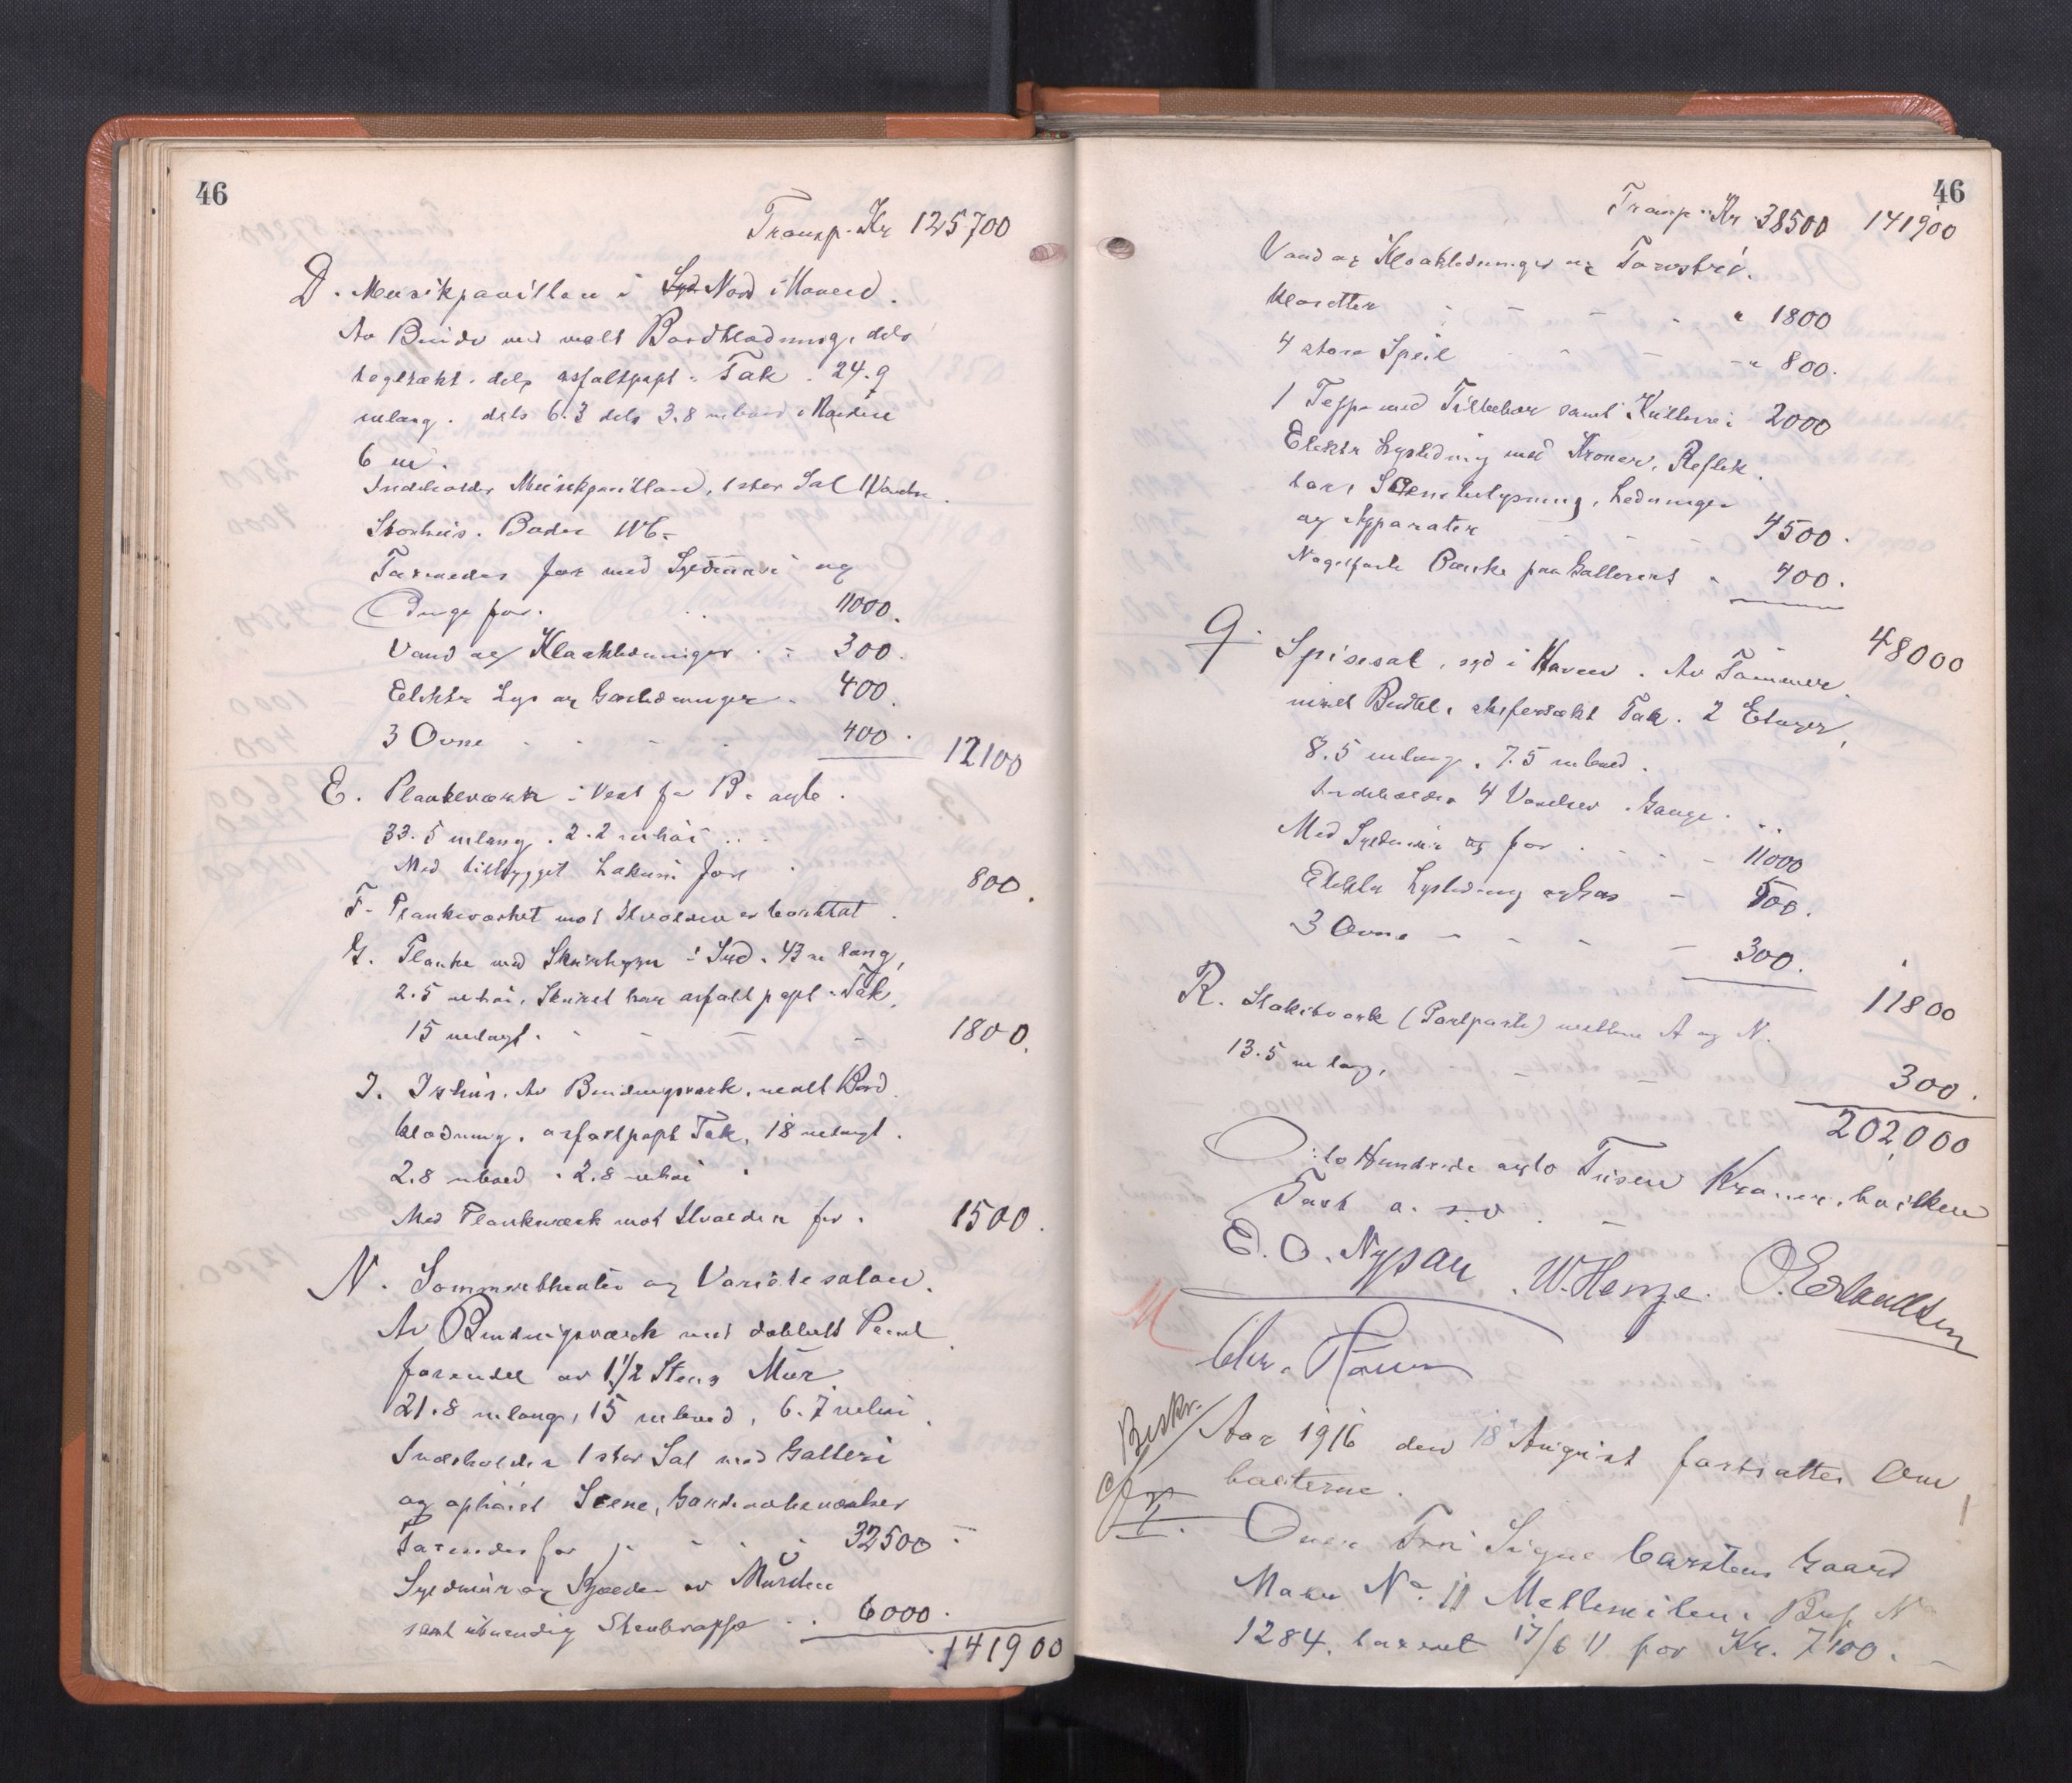 46
Transp. Kr 125700
D. Musikpavillon i Syd Nord i Haven.
Av Bindv med malt Bordklædning, dels
teglsækt. dels asfaltpapt. Tak. 24.9
m lang. dels 6.3 dels 3.8 m bred i Høiden
6 m.
Indeholder Musikpavillon, 1 stor Sal
Boder WC.
Taxeredes før med Syldmur og
før. 11000.
Vand og Kloakledninger 300.
Elektr Lys og Gasledninger 400.
3 Ovne 400. 12100
E. Plankeværk i Vest for B.
33.5 m lang. 2.2 m høi
Med tilbygget Lakum før 800.
F. Plankeværket mot Ilvolden er borttat
G. Planke med Skurbygn i Syd. 43 m lang,
2.5 m høi. Skuret har asfaltpapt Tak,
15 m langt. 1800.
I. Ishus. Av Bindingsværk, malt Bord
klædning, asfaltpapt Tak, 18 m langt.
2.8 m bred. 2.8 m høi
Med Plankeværk mot Ilvolden før. 1500.
N. Sommertheater og Varietesalon.
Av Bindingsværk med dobbelt Panel
forendel av 1 1/2 Stens Mur
21.8 m lang, 15 m bred, 6.7 m høi.
Indeholder 1 stor Sal med Galleri
og ophøiet Scene, Garderobeværelser
Taxeredes før 32500
Syldmur og Kjælder av Mursten
samt utvendig 6000.
141900
46
Transp. Kr 38500 141900
Vand og Kloakledninger og
klosetter " 1800
4 store Speil " 800.
1 Teppe med Tilbehør samt Kulisser 2000
Elektr Lysledning med Kroner, Reflek
tor, Scenebelysning, Ledninger
og Apparater 4500.
Nagelfaste Bænke paa Galleriet 400.
48000
Q. Spisesal, syd i Haven. Av Tømmer
m skifertækt Tak. 2 Etager,
8.5 m lang, 7.5 m bred.
Indeholder 4 Værelser. Gange.
Med Syldmur og før 11000
Elektr Lysledning og Gas 500.
3 Ovne 300.
11800
R. Stakitværk (Portparti) mellem A og N.
13.5 m lang, 300.
202,000
to Hundrede og to Tusen Kroner, hvilken
Taxt a. s.v.
E. O. Nypan W. Henze. O. Erlandsen
M
Chr.
Beskr.
Aar 1916 den 18 August fortsattes Om
taxterne.
Over Fru Signe Carstens Gaard
Matr No 11 Mellemilen. Brf No
1284, taxeret 17/6 11 for Kr. 7100.